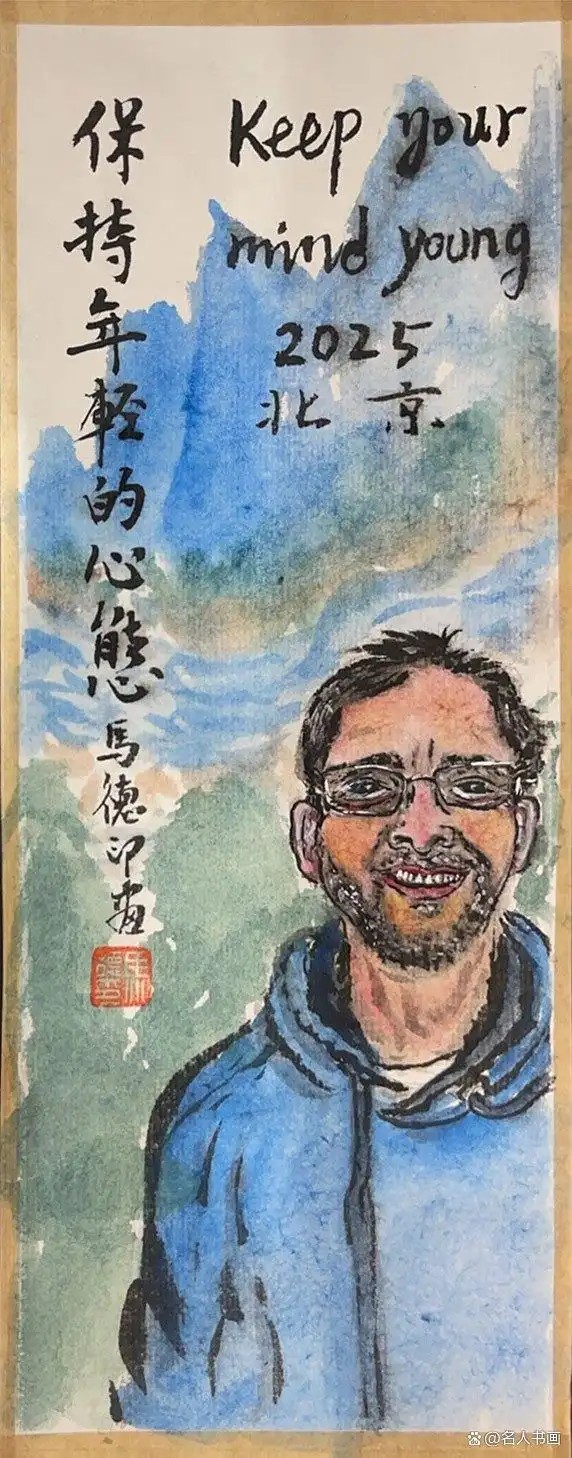 Keep your
mind young
2025
北京
保持年輕的心態
馬德印畫
@名人书画